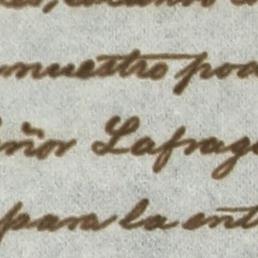 nuestro pod
eñor Lafrag
para la ent